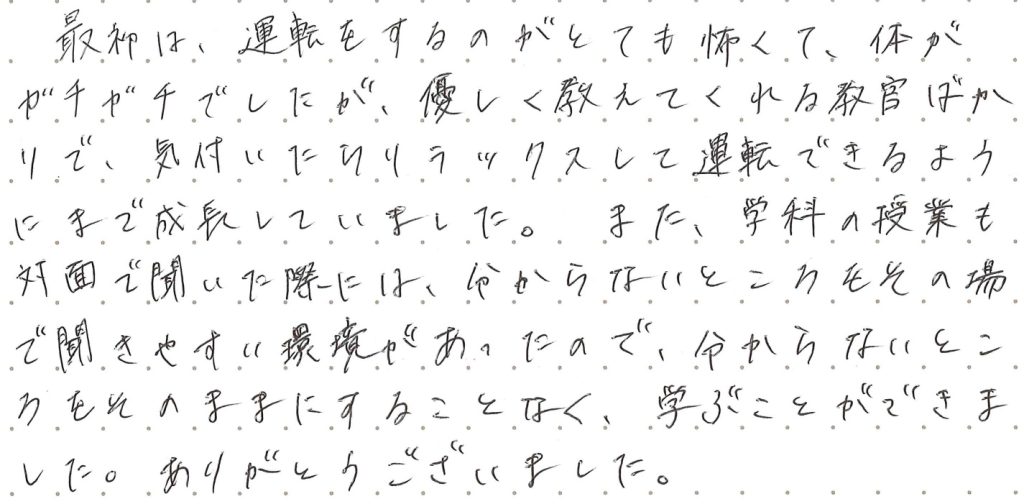 最初は、運転をするのがとても怖くて、体が
ガチガチでしたが、優しく教えてくれる教官ばか
りで、気付いたらリラックスして運転できるよう
にまで成長していました。 また、学科の授業も
対面で聞いた際には、分からないところをその場
で聞きやすい環境があったので、分からないとこ
ろをそのままにすることなく、学ぶことができま
した。ありがとうございました。